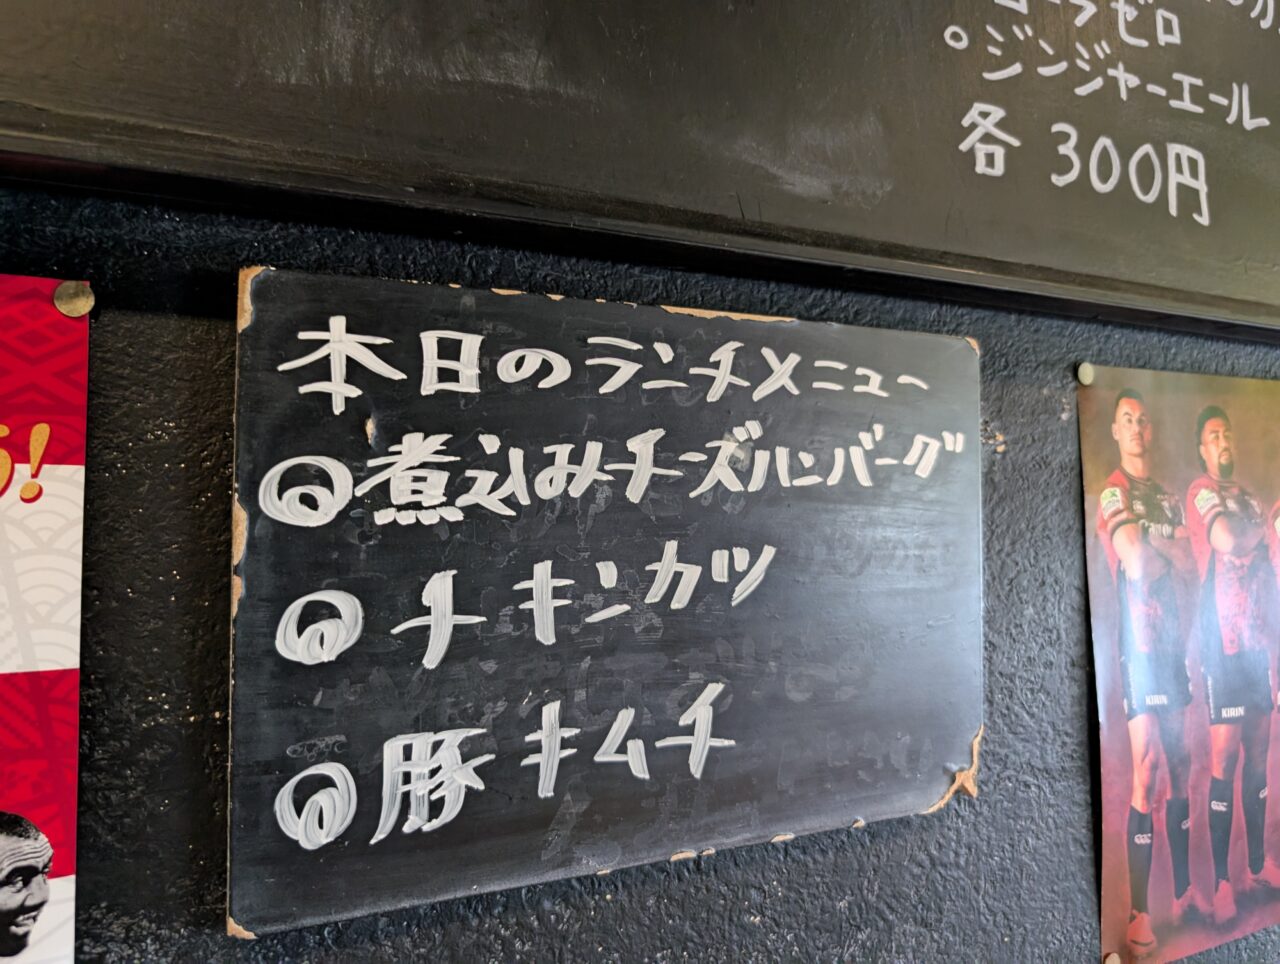 ゼロ
○ジンジャーエール
各 300円
本日のランチメニュー
煮込みチーズハンバーグ
チキンカツ
豚キムチ
!
KIRIN
KIRIN